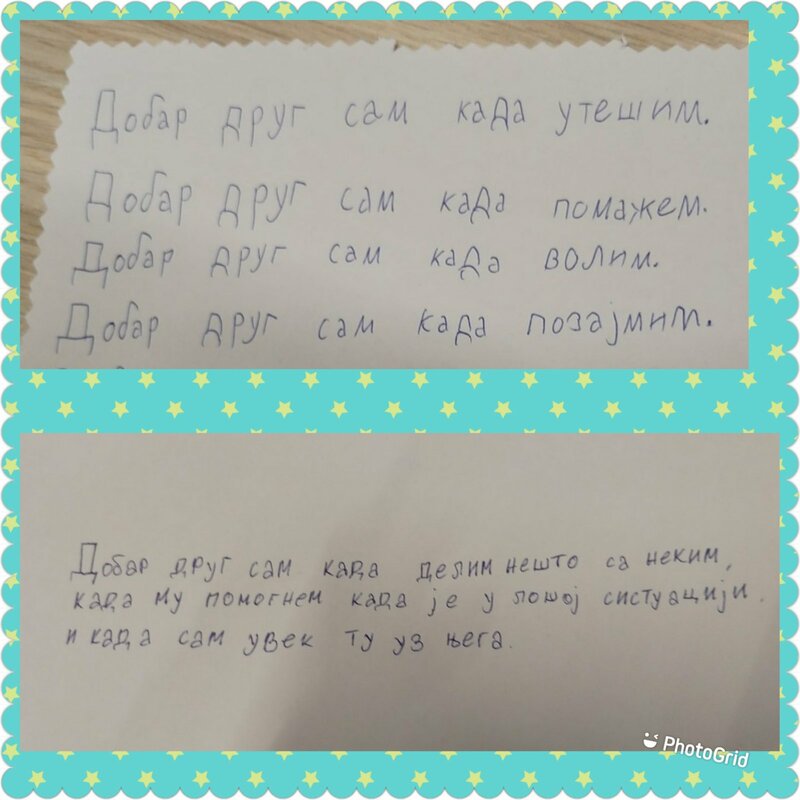 Добар друг сам када утешим.
Добар друг сам када помажем.
Добар друг сам када волим.
Добар друг сам када позајмим.
Добар друг сам када делим нешто са неким,
када му помогнем када је у лошој систуацији.
и када сам увек ту уз њега.
PhotoGrid